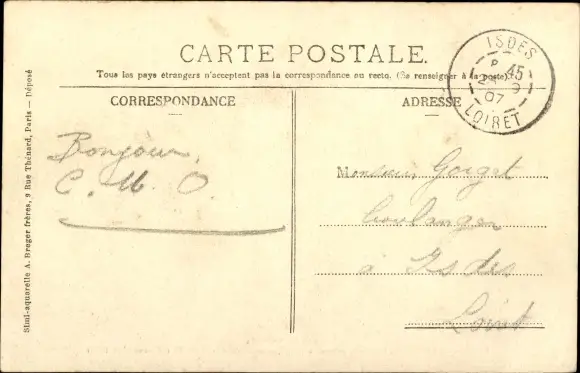 CARTE POSTALE.
Tous les pays étrangers n'acceptent pas la correspondance au recto. (Se renseigner à la poste).
CORRESPONDANCE
ADRESSE
ISDES
45
9
07
LOIRET
Bonjour
C. M. O.
Monsieur Goiget
boulanger
à Isdes
Loiret
Simi-aquarelle A. Breger frères, 9 Rue Thénard, Paris — Déposé